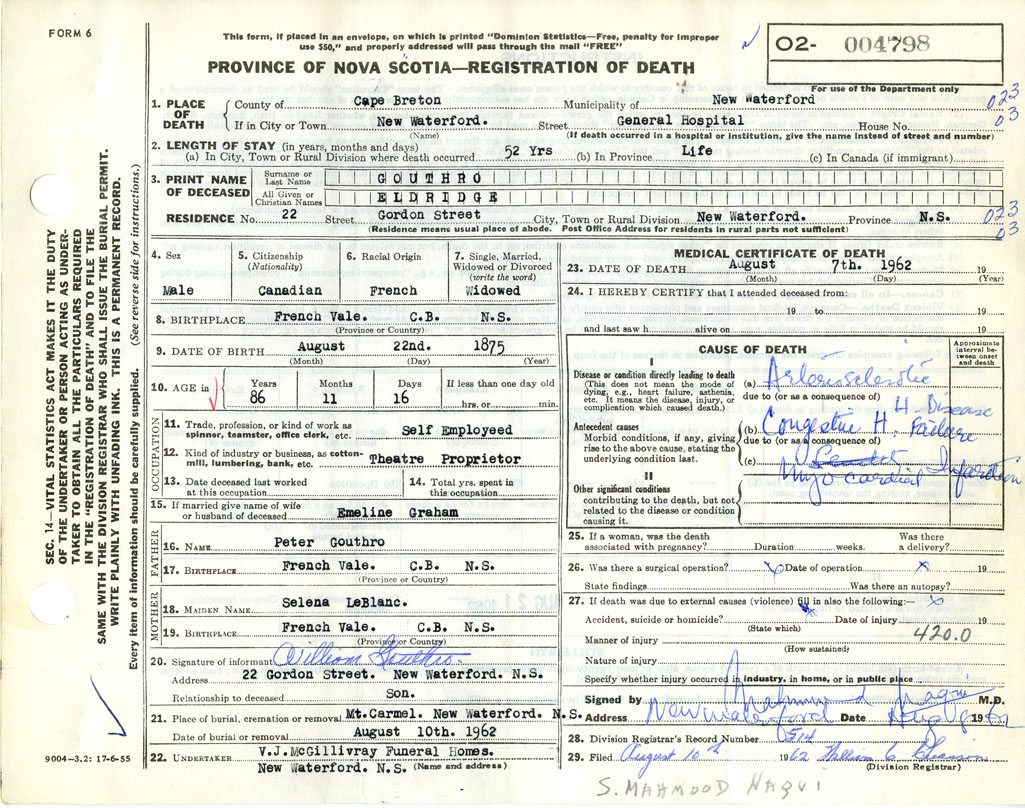 FORM 6
This form, if placed in an envelope, on which is printed "Dominion Statistics—Free, penalty for improper
use $50," and properly addressed will pass through the mail "FREE"
PROVINCE OF NOVA SCOTIA—REGISTRATION OF DEATH
02- 004798
For use of the Department only
1. PLACE OF DEATH County of Cape Breton Municipality of New Waterford 023
If in City or Town New Waterford. Street General Hospital House No. 03
(Name) (If death occurred in a hospital or institution, give the name instead of street and number)
2. LENGTH OF STAY (in years, months and days)
(a) In City, Town or Rural Division where death occurred 52 Yrs (b) In Province Life (c) In Canada (if immigrant)
3. PRINT NAME OF DECEASED
Surname or Last Name GOUTHRO
All Given or Christian Names ELDRIDGE
RESIDENCE No. 22 Street Gordon Street City, Town or Rural Division New Waterford. Province N.S. 023
03
(Residence means usual place of abode. Post Office Address for residents in rural parts not sufficient)
4. Sex
Male
5. Citizenship (Nationality)
Canadian
6. Racial Origin
French
7. Single, Married, Widowed or Divorced (write the word)
Widowed
8. BIRTHPLACE French Vale. C.B. N.S.
(Province or Country)
9. DATE OF BIRTH August 22nd. 1875
(Month) (Day) (Year)
10. AGE in Years Months Days If less than one day old
86 11 16 hrs. or min.
OCCUPATION
11. Trade, profession, or kind of work as spinner, teamster, office clerk, etc. Self Employeed
12. Kind of industry or business, as cotton-mill, lumbering, bank, etc. Theatre Proprietor
13. Date deceased last worked at this occupation
14. Total yrs. spent in this occupation
15. If married give name of wife or husband of deceased Emeline Graham
FATHER
16. NAME Peter Gouthro
17. BIRTHPLACE French Vale. C.B. N.S.
(Province or Country)
MOTHER
18. MAIDEN NAME Selena LeBlanc.
19. BIRTHPLACE French Vale. C.B. N.S.
(Province or Country)
20. Signature of informant William Gouthro.
Address 22 Gordon Street. New Waterford. N.S.
Relationship to deceased Son.
21. Place of burial, cremation or removal Mt.Carmel. New Waterford. N.S.
Date of burial or removal August 10th. 1962
22. UNDERTAKER V.J.McGillivray Funeral Homes.
New Waterford. N.S. (Name and address)
MEDICAL CERTIFICATE OF DEATH
23. DATE OF DEATH August 7th. 1962 19
(Month) (Day) (Year)
24. I HEREBY CERTIFY that I attended deceased from:
19 to 19
and last saw h alive on 19
CAUSE OF DEATH
Approximate interval between onset and death
I
Disease or condition directly leading to death
(This does not mean the mode of dying, e.g., heart failure, asthenia, etc. It means the disease, injury, or complication which caused death.)
(a) Arteriosclerotic
due to (or as a consequence of) H. Disease
Antecedent causes
Morbid conditions, if any, giving rise to the above cause, stating the underlying condition last.
(b) Congestive H. Failure
due to (or as a consequence of)
(c)
Myocardial Infarction
II
Other significant conditions
contributing to the death, but not related to the disease or condition causing it.
25. If a woman, was the death associated with pregnancy? Duration weeks. Was there a delivery?
26. Was there a surgical operation? Date of operation x 19
State findings Was there an autopsy?
27. If death was due to external causes (violence) fill in also the following:— x
Accident, suicide or homicide? Date of injury 19
(State which)
420.0
Manner of injury
(How sustained)
Nature of injury
Specify whether injury occurred in industry, in home, or in public place
Signed by Mahmood Naqui M.D.
Address New Waterford Date Aug 8 1962
28. Division Registrar's Record Number 514
29. Filed August 10th 1962 William C
(Division Registrar)
S. MAHMOOD NAQUI
SEC. 14—VITAL STATISTICS ACT MAKES IT THE DUTY
OF THE UNDERTAKER OR PERSON ACTING AS UNDER-
TAKER TO OBTAIN ALL THE PARTICULARS REQUIRED
IN THE "REGISTRATION OF DEATH" AND TO FILE THE
SAME WITH THE DIVISION REGISTRAR WHO SHALL ISSUE THE BURIAL PERMIT.
WRITE PLAINLY WITH UNFADING INK. THIS IS A PERMANENT RECORD.
Every item of information should be carefully supplied. (See reverse side for instructions.)
9004-3.2: 17-6-55